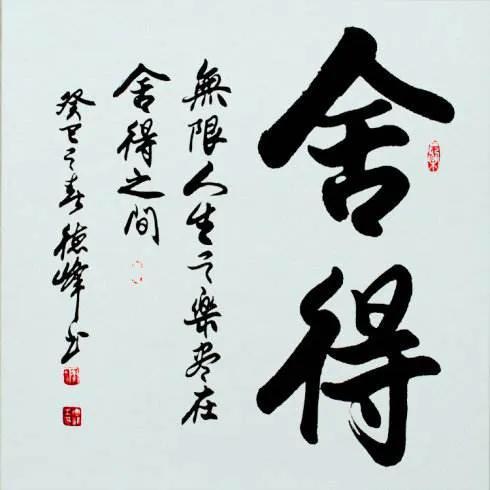 舍得
無限人生之樂盡在
舍得之間
癸巳之春德峰书